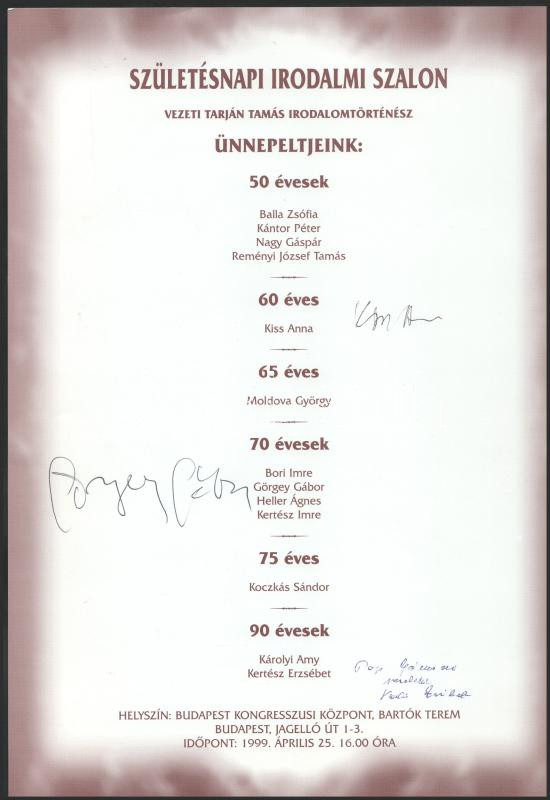 SZÜLETÉSNAPI IRODALMI SZALON
VEZETI TARJÁN TAMÁS IRODALOMTÖRTÉNÉSZ
ÜNNEPELTJEINK:
50 évesek
Balla Zsófia
Kántor Péter
Nagy Gáspár
Reményi József Tamás
60 éves
Kiss Anna
65 éves
Moldova György
70 évesek
Bori Imre
Görgey Gábor
Heller Ágnes
Kertész Imre
Görgey Gábor
75 éves
Koczkás Sándor
90 évesek
Károlyi Amy
Kertész Erzsébet
HELYSZÍN: BUDAPEST KONGRESSZUSI KÖZPONT, BARTÓK TEREM
BUDAPEST, JAGELLÓ ÚT 1-3.
IDŐPONT: 1999. ÁPRILIS 25. 16.00 ÓRA